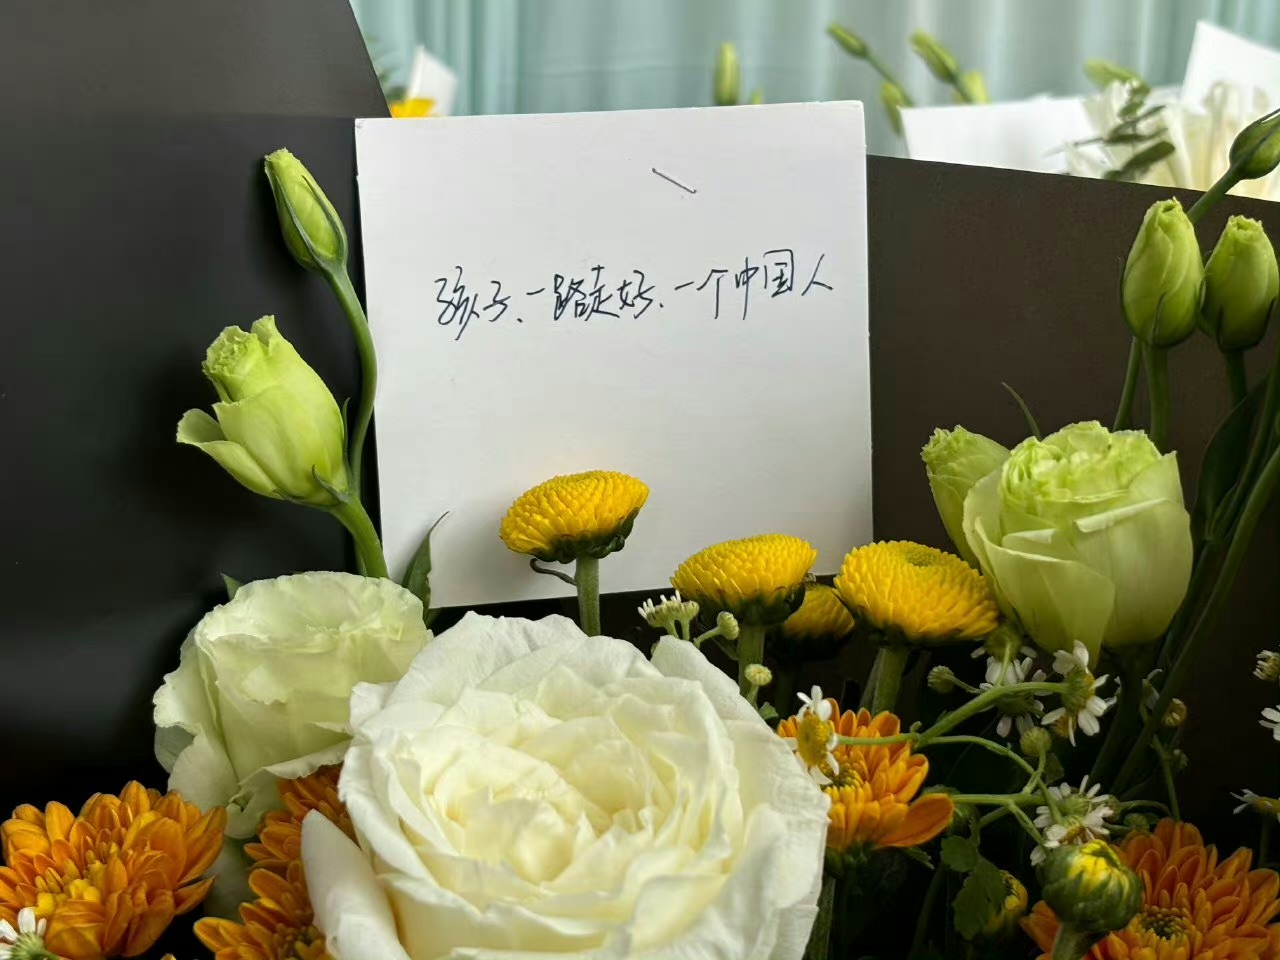 孩子、一路走好、一个中国人